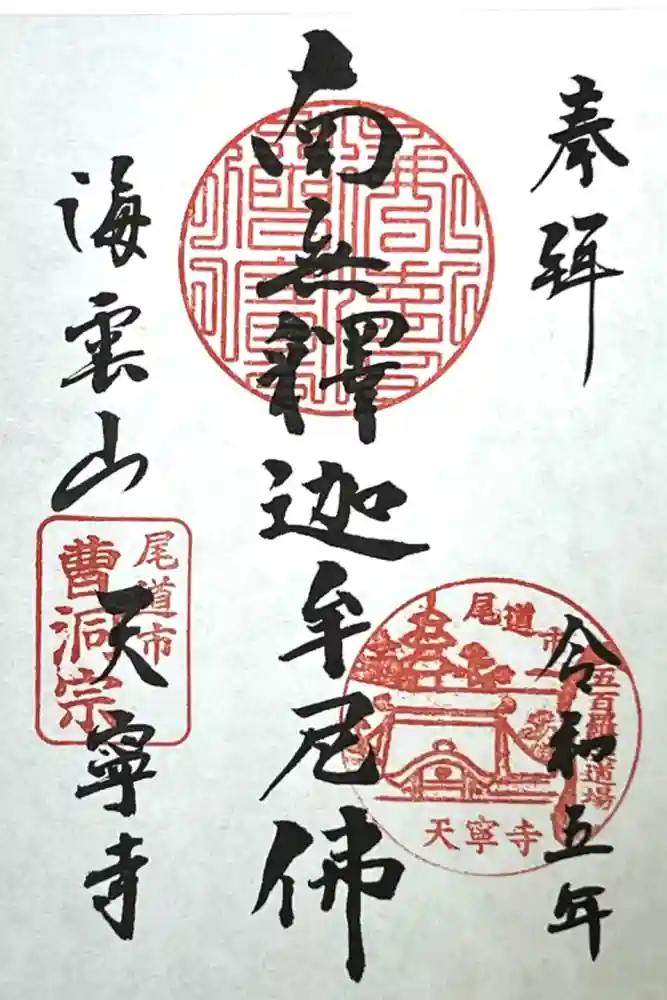 奉拝
令和五年
南無釋迦牟尼佛
海雲山
天寧寺
尾道市
五百羅漢道場
天寧寺
尾道市
曹洞宗